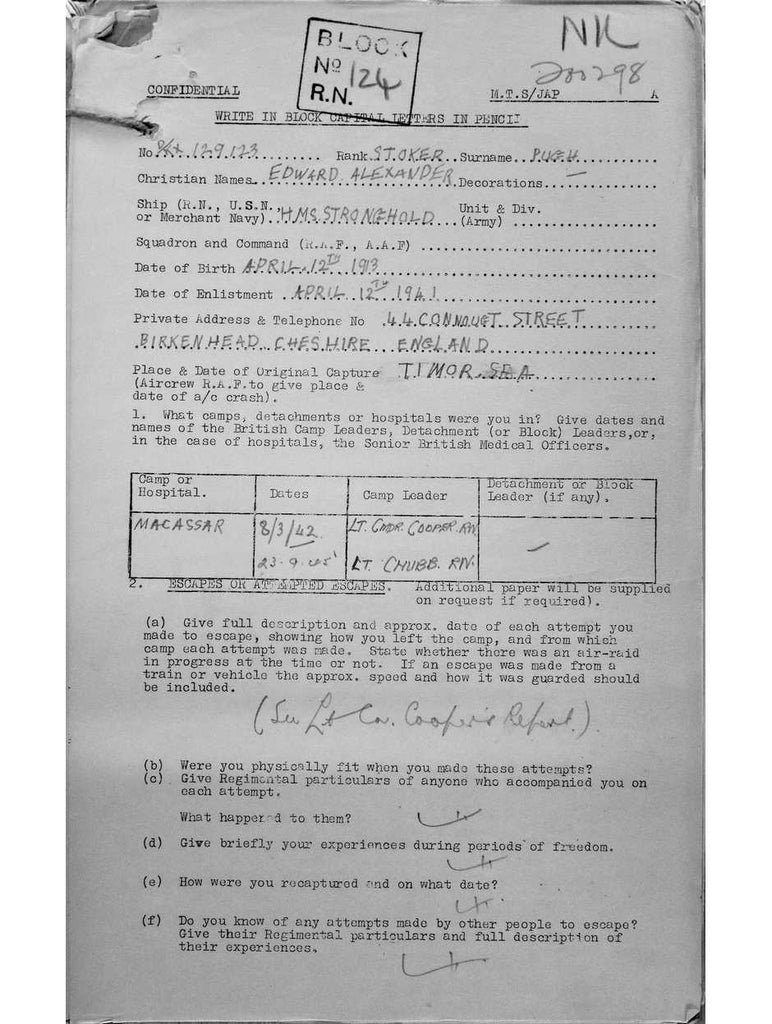 BLOCK
No 124
R.N.
NK
CONFIDENTIAL
M.T.S/JAP A
WRITE IN BLOCK CAPITAL LETTERS IN PENCIL
No. 129123 Rank STOKER Surname PUGH
Christian Names EDWARD ALEXANDER Decorations —
Ship (R.N., U.S.N., Unit & Div.
or Merchant Navy) HMS STRONGHOLD (Army)
Squadron and Command (R.A.F., A.A.F)
Date of Birth APRIL 12TH 1913
Date of Enlistment APRIL 12TH 1941
Private Address & Telephone No 44 CONNOUGT STREET
BIRKENHEAD CHESHIRE ENGLAND
Place & Date of Original Capture TIMOR SEA
(Aircrew R.A.F. to give place &
date of a/c crash).
1. What camps, detachments or hospitals were you in? Give dates and
names of the British Camp Leaders, Detachment (or Block) Leaders, or,
in the case of hospitals, the Senior British Medical Officers.
Camp or Hospital. Dates Camp Leader Detachment or Block Leader (if any).
MACASSAR 8/3/42 LT. CMDR. COOPER. RN —
23.9.45 LT. CHUBB. RN.
2. ESCAPES OR ATTEMPTED ESCAPES. Additional paper will be supplied
on request if required).
(a) Give full description and approx. date of each attempt you
made to escape, showing how you left the camp, and from which
camp each attempt was made. State whether there was an air-raid
in progress at the time or not. If an escape was made from a
train or vehicle the approx. speed and how it was guarded should
be included.
(See Lt Co. Cooper's Report.)
(b) Were you physically fit when you made these attempts?
(c) Give Regimental particulars of anyone who accompanied you on
each attempt.
What happened to them?
(d) Give briefly your experiences during periods of freedom.
(e) How were you recaptured and on what date?
(f) Do you know of any attempts made by other people to escape?
Give their Regimental particulars and full description of
their experiences.